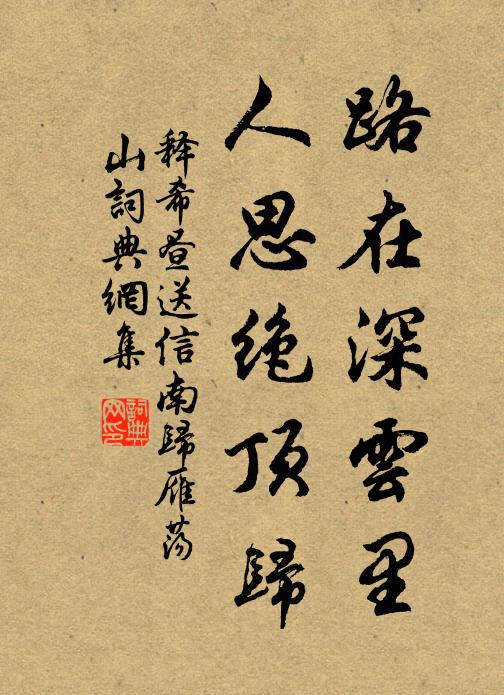 路在深雲里
人思絶頂歸
释希昼送信南歸雁荡
山詞典網集
詞典
网印